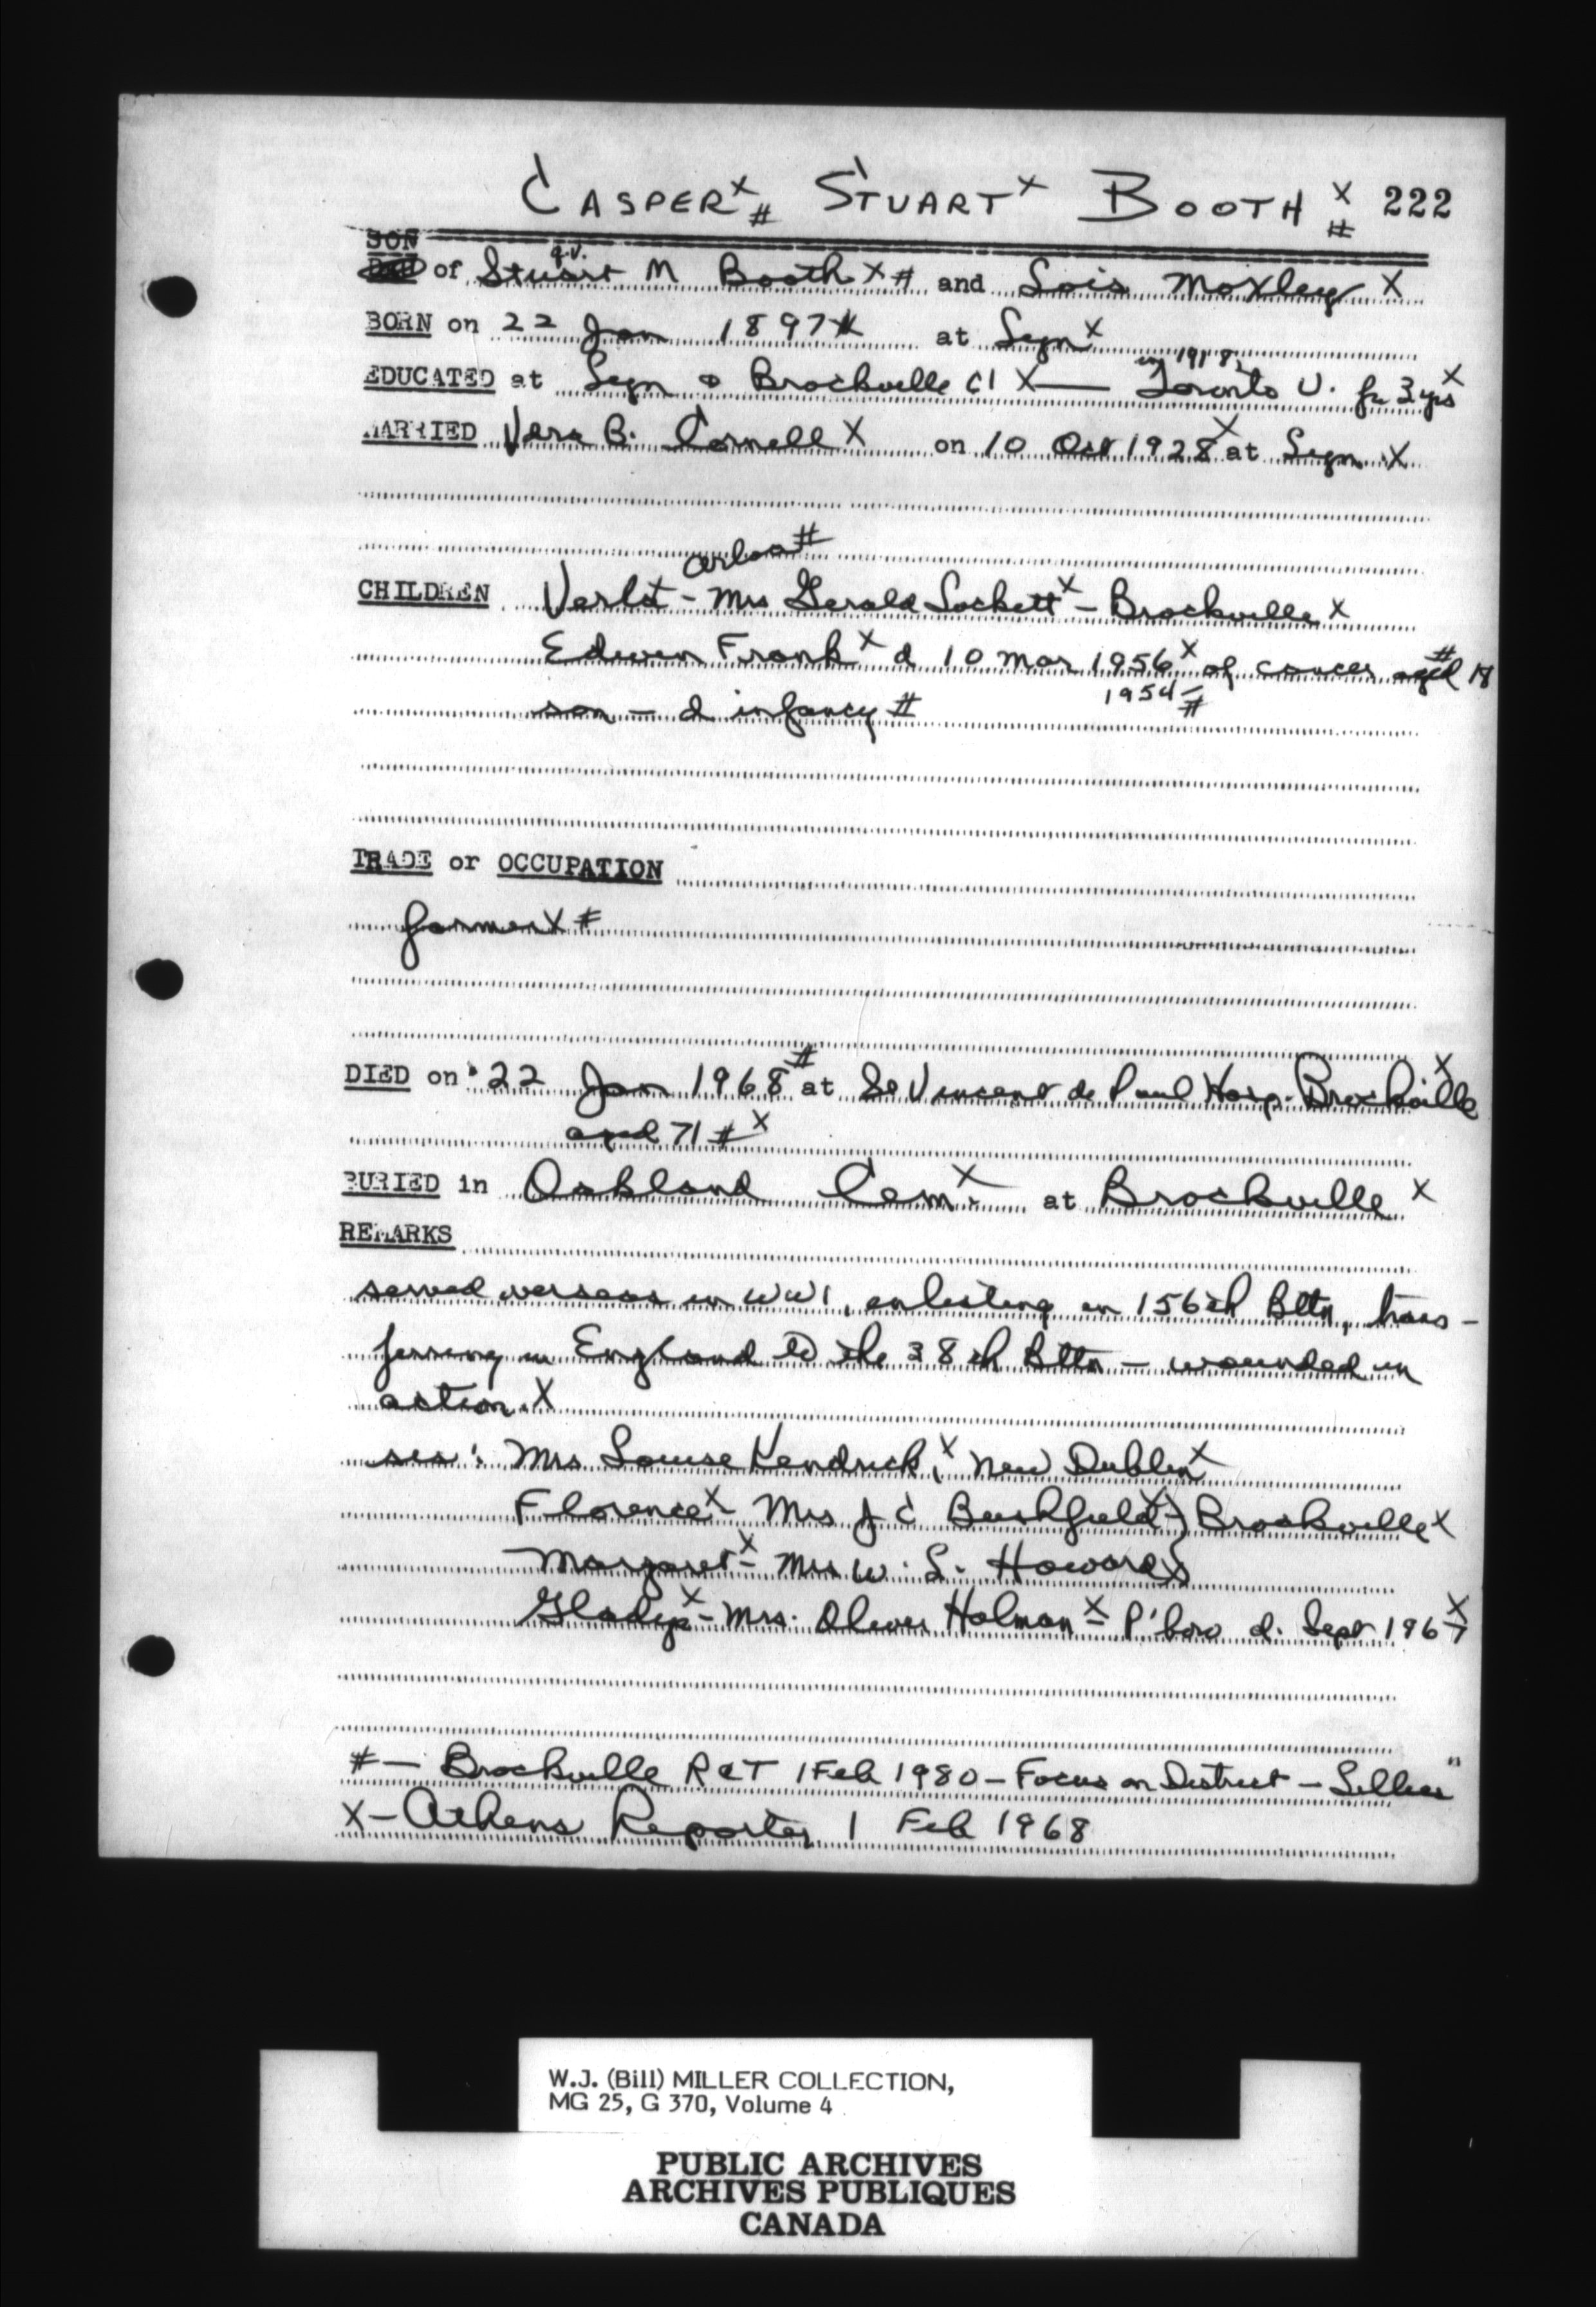 CASPER X # STUART X BOOTH X # 222
SON
of Stuart q.v. M Booth X # and Lois Moxley X
BORN on 22 Jan 1897 # at Lyn X
in 1918
EDUCATED at Lyn & Brockville CI X — Toronto U. for 3 yrs X
MARRIED Vera B. Cornell X on 10 Oct 1928 X at Lyn X
Arloa #
CHILDREN Verla - Mrs Gerald Lockett X - Brockville X
Edwin Frank X d 10 Mar 1956 X of cancer aged # 18
1954 - #
son - d infancy #
TRADE or OCCUPATION
farmer X #
DIED on 22 Jan 1968 # at St Vincent de Paul Hosp. Brockville X
aged 71 # X
BURIED in Oakland Cem X at Brockville X
REMARKS
served overseas in WW1, enlisting in 156th Bttn, trans-
ferring in England to the 38th Bttn - wounded in
action X
sis: Mrs Louise Kendrick, X New Dublin X
Florence X - Mrs J C Bushfield X } Brockville X
Margaret X - Mrs W. S. Howard X }
Gladys X - Mrs. Oliver Holman X - P'boro d. Sept 1967 X
# - Brockville R & T 1 Feb 1980 - Focus on District -
X - Athens Reporter 1 Feb 1968
W.J. (Bill) MILLER COLLECTION,
MG 25, G 370, Volume 4
PUBLIC ARCHIVES
ARCHIVES PUBLIQUES
CANADA